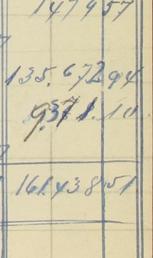 147957
135.67294
9371.10
161.43851